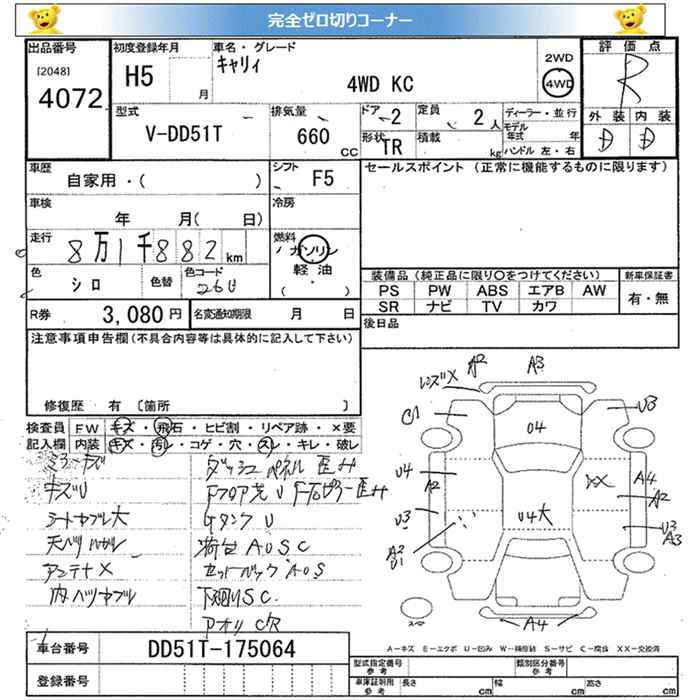 完全ゼロ切りコーナー
出品番号 初度登録年月 車名・グレード 評価点
[2048] H5 月 キャリィ 2WD
4072 4WD KC 4WD R
型式 排気量 ドア 定員 ディーラー・並行 外装 内装
V-DD51T 660 CC 2 2人 モデル年式 年 D D
形状 積載 kg ハンドル 左・右
TR
車歴 シフト セールスポイント (正常に機能するものに限ります)
自家用・( ) F5
車検 冷房
年 月( 日)
走行 燃料
8万1千882km ガソリン
軽油
( ・ )
色 色替 色コード 装備品 (純正品に限り○をつけてください) 新車保証書
シロ 26U PS PW ABS エアB AW 有・無
SR ナビ TV カワ
R券 3,080円 名変通知期限 月 日 後日品
注意事項申告欄 (不具合内容等は具体的に記入して下さい)
修復歴 有 [箇所
検査員 FW キズ・飛石・ヒビ割・リペア跡・×要
記入欄 内装 キズ・汚レ・コゲ・穴・スレ・キレ・破レ
ミラーキズ ダッシュパネル歪ミ
キズU
シートヤブレ大 GタンクU
荷台AUSC
アンテナX セットバックAUS
内ハリヤブレ 下廻りSC
アオリ
レンズX A2 A3
U3
U4
U4 A2 XX A4 A2
U3 U4大 U3 A3
A2 U1
A4
スペア
A-キズ E-エクボ U-凹み W-補修跡 S-サビ C-腐食 XX-交換済
車台番号 DD51T-175064 型式指定番号 参考 類別区分番号 参考
登録番号 車庫証明用 参考 長さ cm 幅 cm 高さ cm